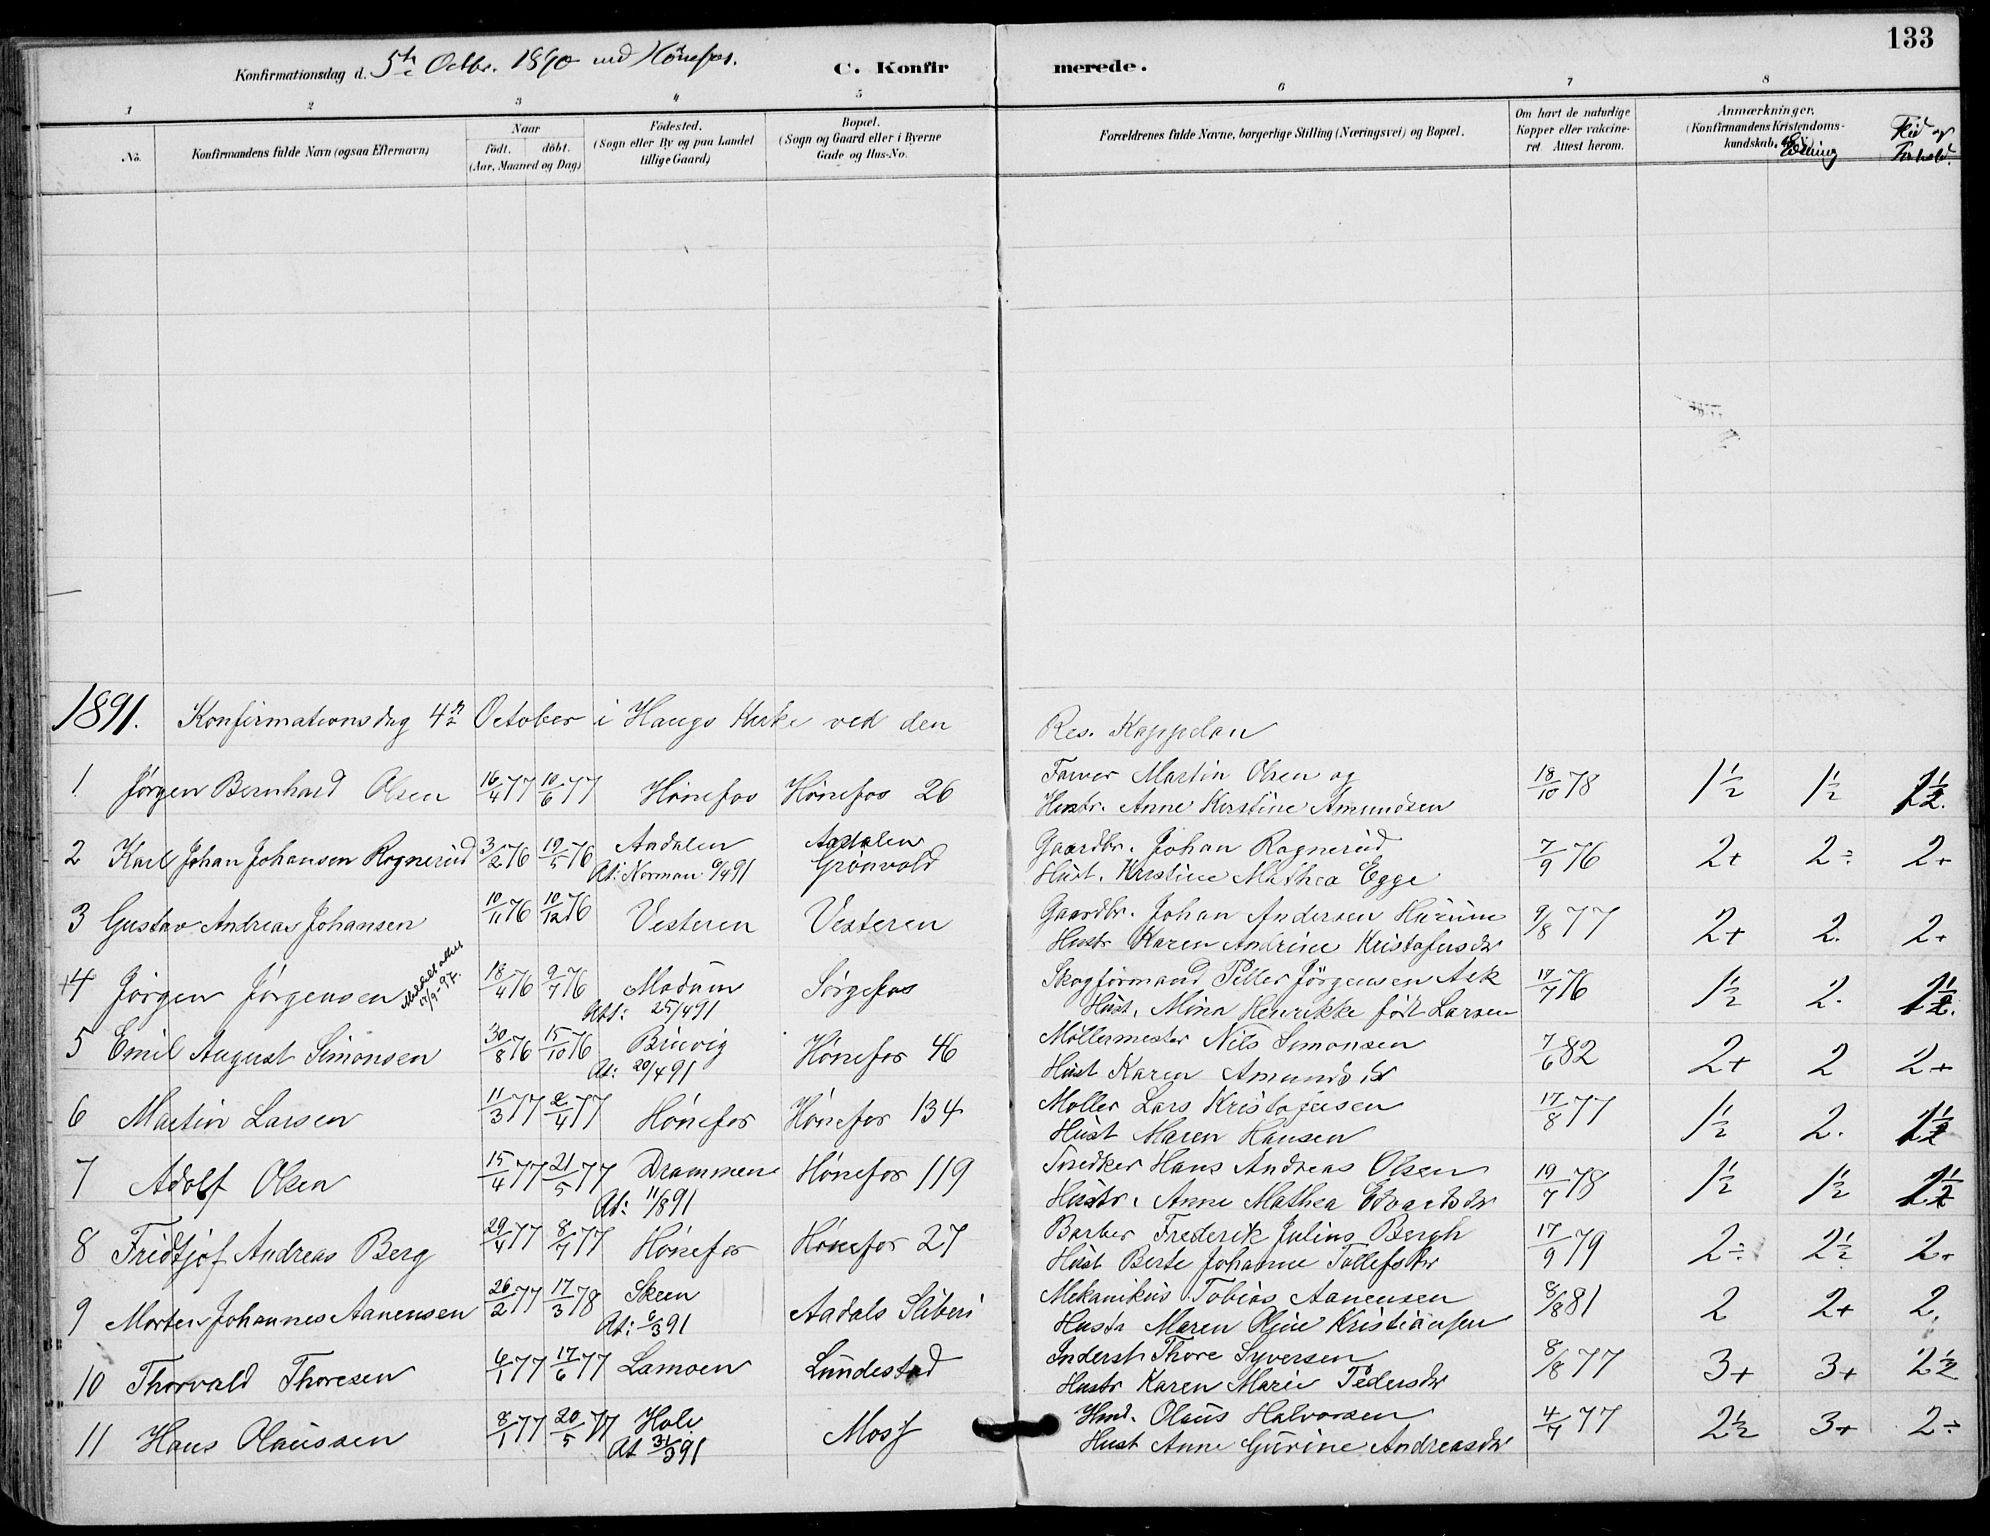 133
Konfirmationsdag d. 5te Octbr. 1890 ved Hønefos.
C. Konfir merede.
1 2 3 4 5 6 7 8
No.
Konfirmandens fulde Navn (ogsaa Efternavn)
Naar
født. døbt.
(Aar, Maaned og Dag)
Fødested.
(Sogn eller By og paa Landet
tillige Gaard)
Bopæl.
(Sogn og Gaard eller i Byerne
Gade og Hus-No.
Forældrenes fulde Navne, borgerlige Stilling (Næringsvei) og Bopæl.
Om havt de naturlige
Kopper eller vakcine-
ret Attest herom.
Anmærkninger,
(Konfirmandens Kristendoms-
kundskab,
Flid og
Forhold.
1891. Konfirmationsdag 4de October i Haugs Kirke ved den Res. Kappelan
1 Jørgen Bernhard Olsen 16/4 77 10/6 77 Hønefos Hønefos 26 Farver Martin Olsen og 18/10 78 1½ 1½ 1½.
Hustr. Anne Kirstine Amundsen
2 Karl Johan Johansen Rognerud 3/2 76 19/5 76 Aadalen Aadalen Gaardbr. Johan Rognerud 7/9 76 2+ 2÷ 2+
At: Norman 9/4 91 Grönvold Hust. Kirstine Mathea Egge
3 Gustav Andreas Johansen 10/11 76 10/12 76 Vesteren Vesteren Gaardbr. Johan Andersen Hurum 9/8 77 2+ 2. 2+
Hustr Karen Andrine Kristofersdr
+4 Jørgen Jørgensen 18/4 76 9/7 76 Modum Sørgefos Skogformand Petter Jörgensen Ask 17/7 76 1½ 2. 1½.
17/9-97.
Att: 25/4 91 Hust. Mina Henrikke født Larsen
5 Emil August Simonsen 30/8 76 15/10 76 Bruvig Hønefos 46 Møllermester Nils Simonsen 7/6 82 2+ 2 2+
At: 20/4 91 Hust Karen Amundsdr
6 Martin Larsen 11/3 77 2/4 77 Hønefos Hønefos 134 Møller Lars Kristofersen 17/8 77 1½ 2. 1½
Hust Maren Hansen
7 Adolf Olsen 15/4 77 21/5 77 Drammen Hønefos 119 Snedker Hans Andreas Olsen 19/7 78 1½ 1½ 1½
At: 11/8 91 Hustr. Anne Mathea Edvardsdr
8 Fridtjof Andreas Berg 29/4 77 8/7 77 Hønefos Hønefos 27 Barber Frederik Julius Bergh 17/9 79 2÷ 2½ 2+
Hust Berte Johanne Tollefsdr
9 Morten Johannes Aanensen 26/2 77 17/3 78 Skeen Aadals Sliberi Mekanikus Tobias Aanensen 8/8 81 2 2+ 2.
At: 6/3 91 Hustr Maren Oline Kristiansen
10 Thorvald Thoresen 6/1 77 17/6 77 Lamoen Lundestad Inderst Thore Syversen 8/8 77 3+ 3+ 2½
Hustr Karen Marie Pedersdr
11 Hans Olaussen 8/1 77 20/5 77 Hole Mosj Hmd. Olaus Halvorsen 4/7 77 2½ 3+ 2÷
At 31/3 91 Hust Anne Gurine Andreasdr